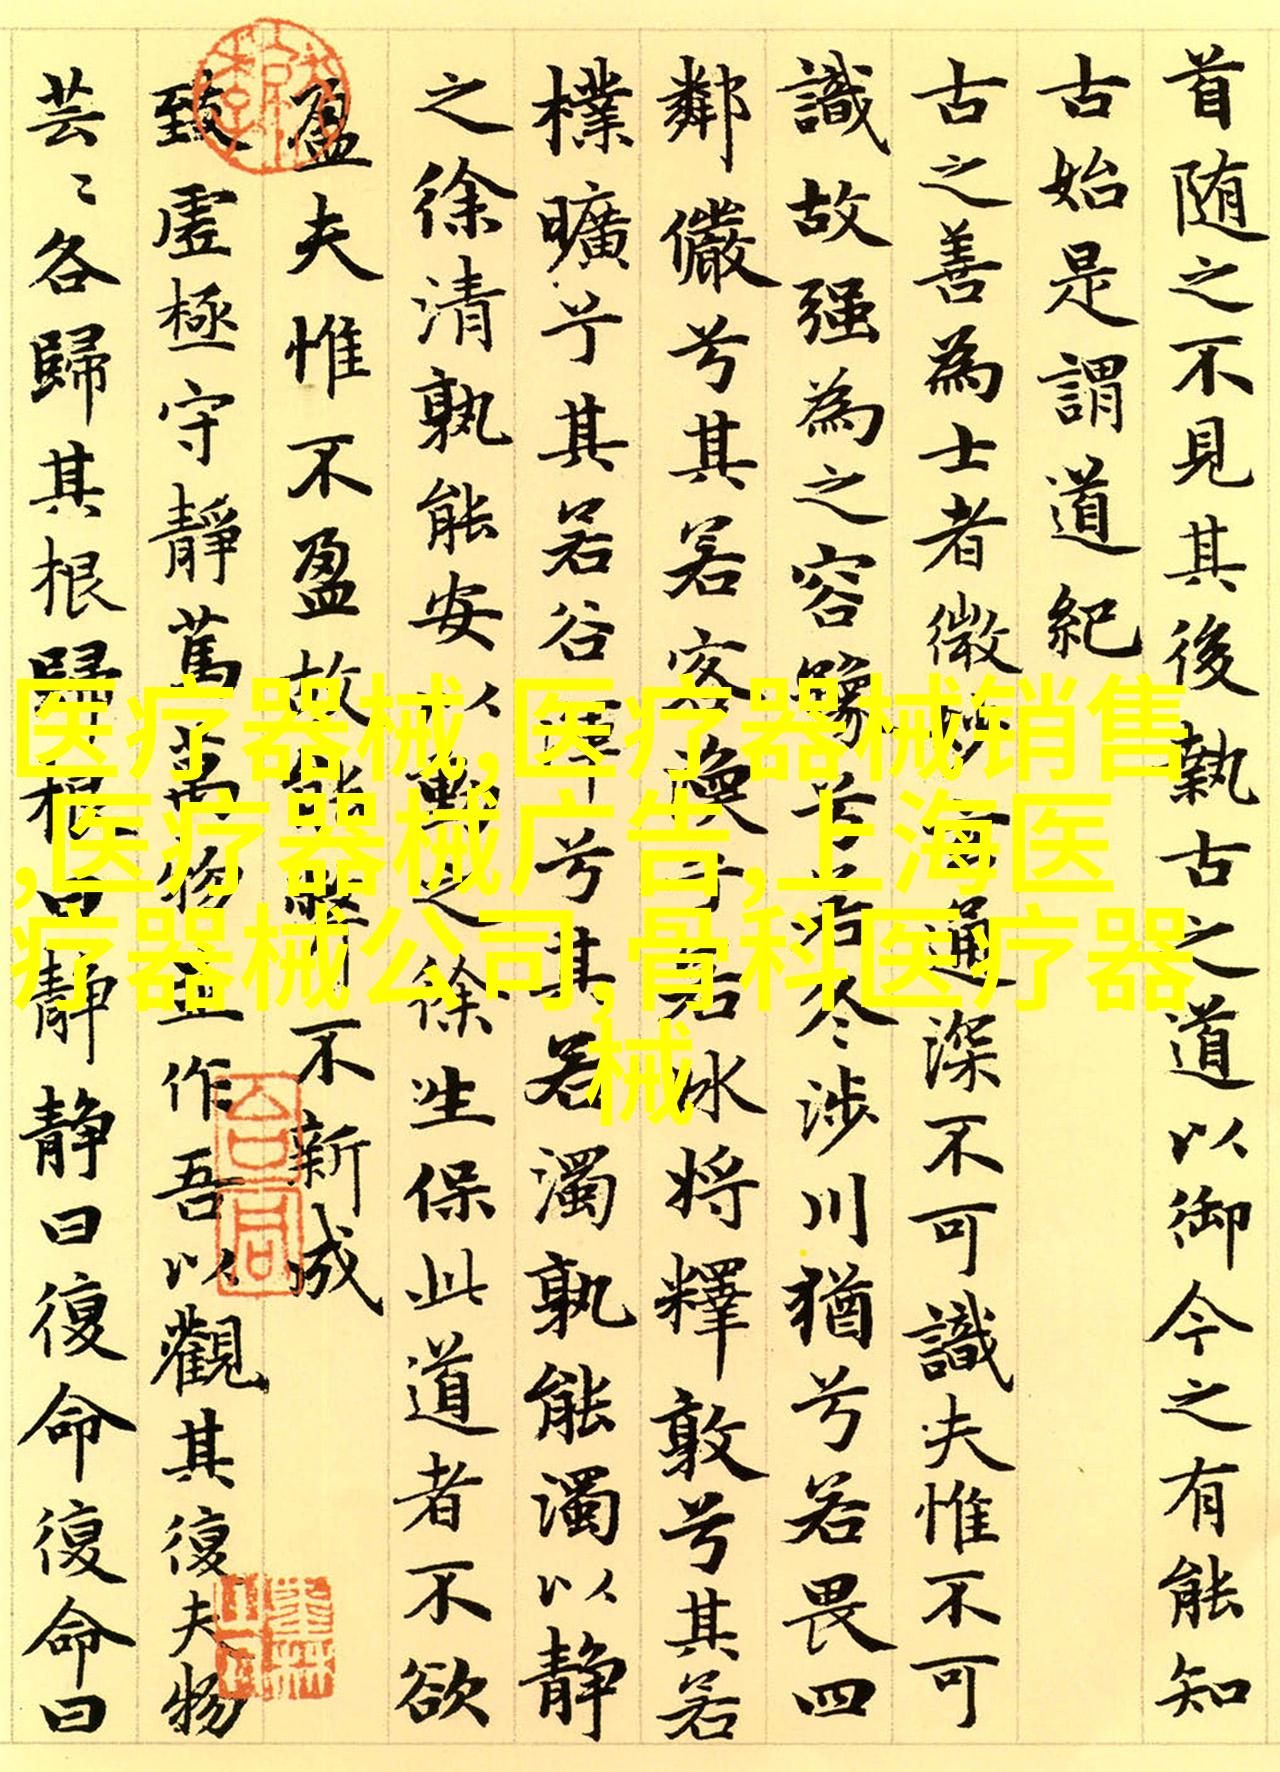 首随之不見其後執古之道以御今之有能知
古始是謂道紀
古之善為士者微妙玄通深不可識夫惟不可
識故强為之容豫兮若冬涉川猶兮若畏四
鄰儼兮其若客渙兮若冰将釋敦兮其若
樸曠兮其若谷渾兮其若濁孰能濁以静
之徐清孰能安以動之徐生保此道者不欲
盈夫惟不盈故能不新成
致虛極守靜篤萬物並作吾以觀其復夫物
芸〻各歸其根歸根曰静静曰復命復命曰
医疗器械,医疗器械销售
,医疗器械广告,上海医
疗器械公司,骨科医疗器
械